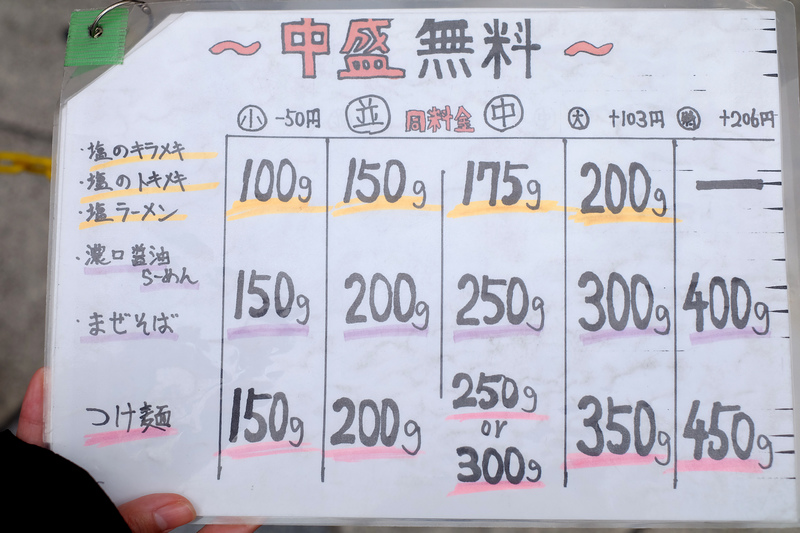 ～中盛無料～
小 -50円 並 同料金 中 大 +103円 +206円
・塩のキラメキ
・塩のトキメキ
・塩ラーメン
100g 150g 175g 200g ー
・濃口醤油
らーめん
・まぜそば
150g 200g 250g 300g 400g
つけ麺
150g 200g 250g or 300g 350g 450g